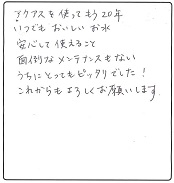 アクアスを使ってもう20年
いつでもおいしいお水
安心して使えること
面倒なメンテナンスもない
うちにとってもピッタリでした!
これからもよろしくお願いします